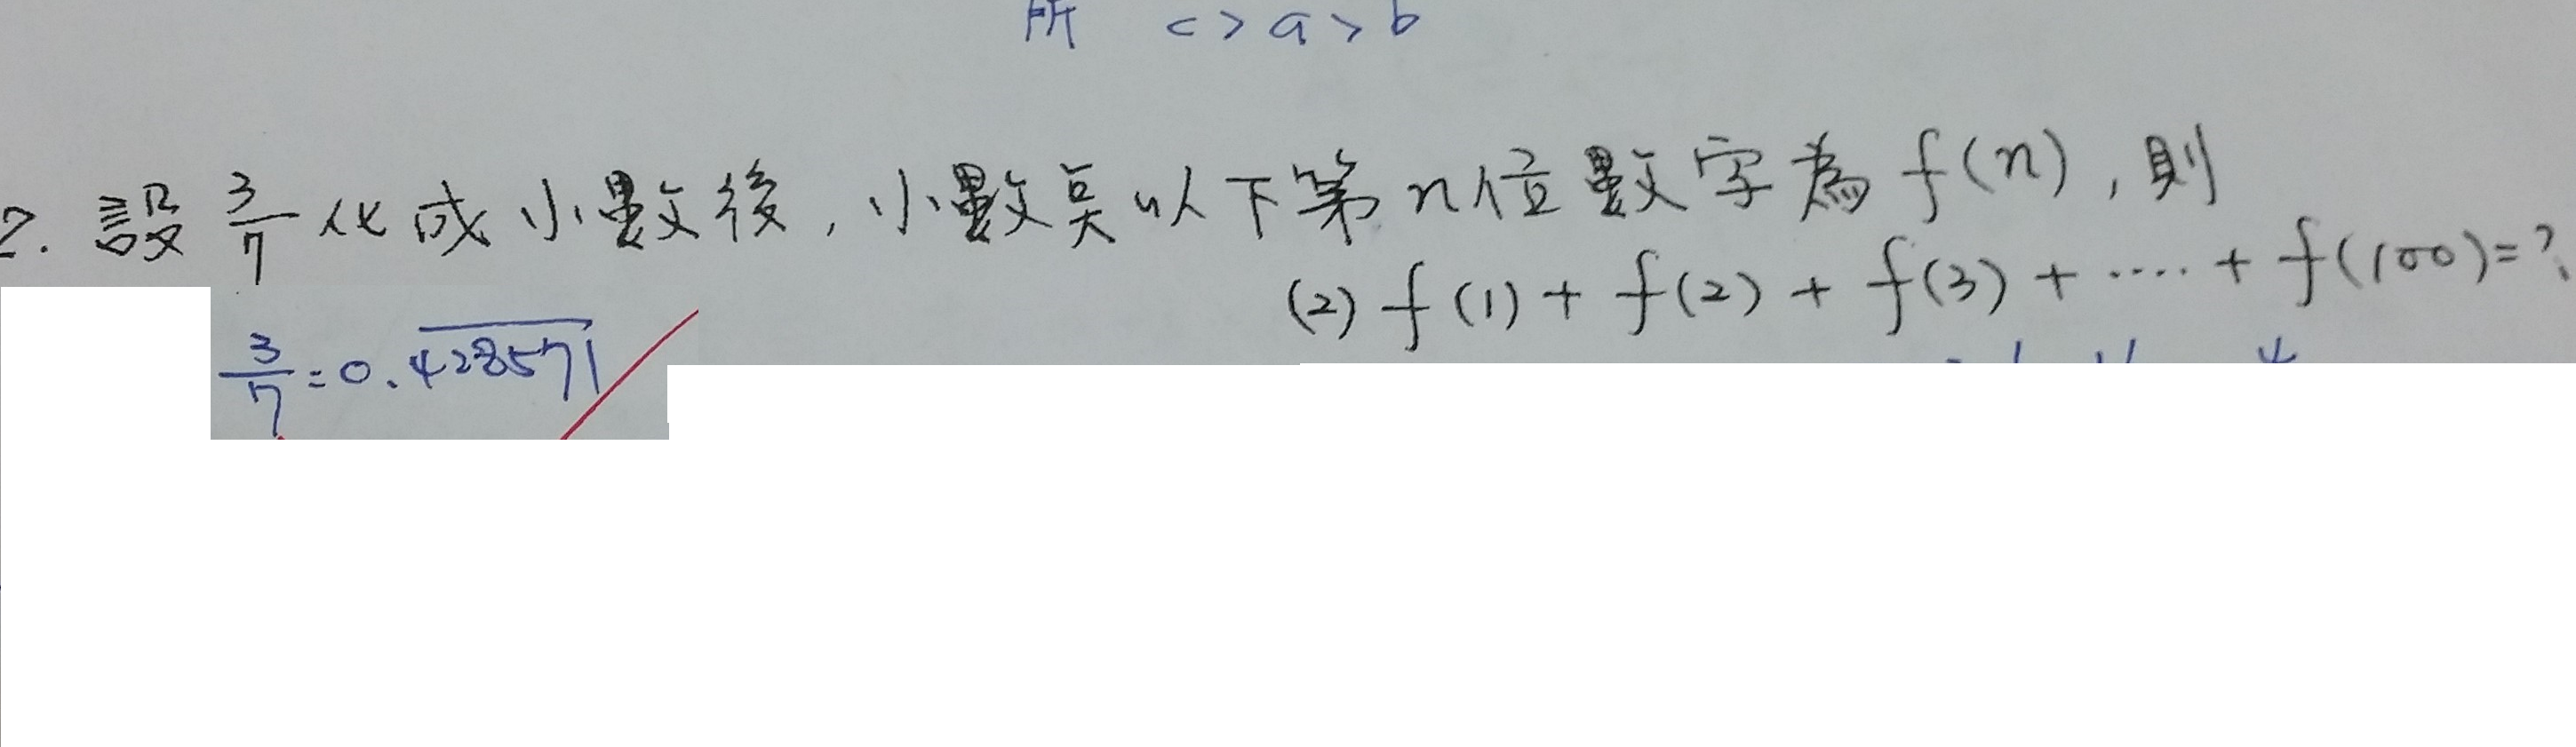 所 c>a>b
2. 設 3/7 化成小數後,小數點以下第n位數字為f(n),則
(2) f(1)+f(2)+f(3)+....+f(100)=?
3/7=0.4̅2̅8̅5̅7̅1̅